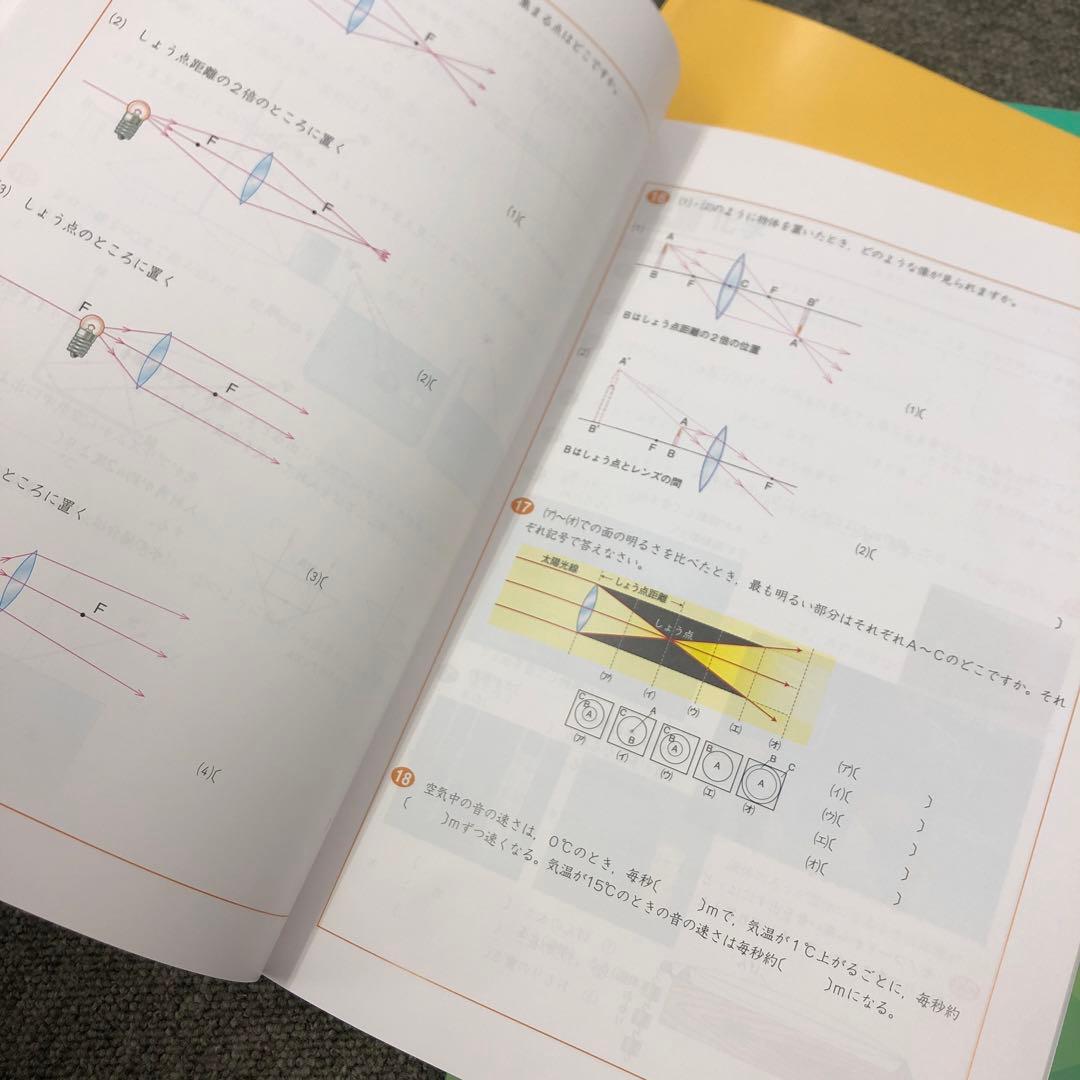 集まる点はどこですか。
F
(1)(
(2) しょう点距離の2倍のところに置く
F
F
(2)(
(3) しょう点のところに置く
F
F
(3)(
ところに置く
F
(4)(
16 (1)・(2)のように物体を置いたとき，どのような像が見られますか。
(1)
A
B
F
C
F
B'
A'
Bはしょう点距離の2倍の位置
(1)(
(2)
A'
B'
F
A
B
F
Bはしょう点とレンズの間
(2)(
)
17 (ア)〜(オ)での面の明るさを比べたとき，最も明るい部分はそれぞれA〜Cのどこですか。それ
ぞれ記号で答えなさい。
太陽光線
しょう点距離
しょう点
(ア)
(イ)
(ウ)
(エ)
(オ)
C B A
C A B
C B A
B A
B C A
(ア)
(イ)
(ウ)
(エ)
(オ)
(ア)( )
(イ)( )
(ウ)( )
(エ)( )
(オ)( )
18 空気中の音の速さは，0℃のとき，毎秒( )mで，気温が1℃上がるごとに，毎秒約
( )mずつ速くなる。気温が15℃のときの音の速さは毎秒約( )mになる。